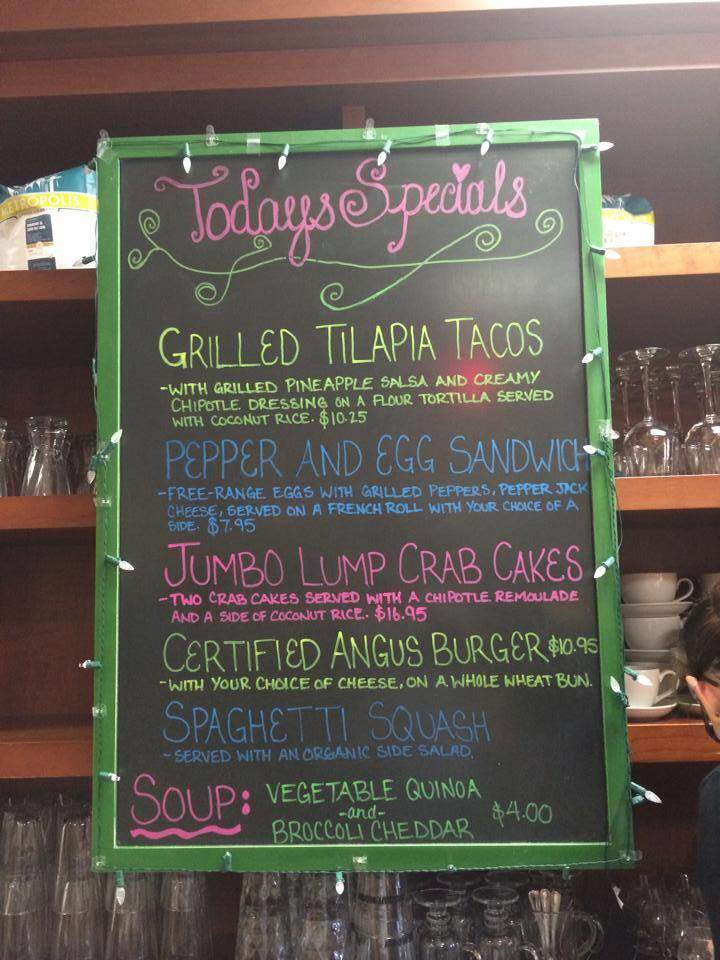 Todays Specials
METROPOLIS
GRILLED TILAPIA TACOS
-WITH GRILLED PINEAPPLE SALSA AND CREAMY
CHIPOTLE DRESSING ON A FLOUR TORTILLA SERVED
WITH COCONUT RICE. $10.25
PEPPER AND EGG SANDWICH
-FREE-RANGE EGGS WITH GRILLED PEPPERS, PEPPER JACK
CHEESE, SERVED ON A FRENCH ROLL WITH YOUR CHOICE OF A
SIDE. $7.95
JUMBO LUMP CRAB CAKES
-TWO CRAB CAKES SERVED WITH A CHIPOTLE REMOULADE
AND A SIDE OF COCONUT RICE. $16.95
CERTIFIED ANGUS BURGER $10.95
-WITH YOUR CHOICE OF CHEESE, ON A WHOLE WHEAT BUN.
SPAGHETTI SQUASH
-SERVED WITH AN ORGANIC SIDE SALAD.
SOUP: VEGETABLE QUINOA
-and- $4.00
BROCCOLI CHEDDAR